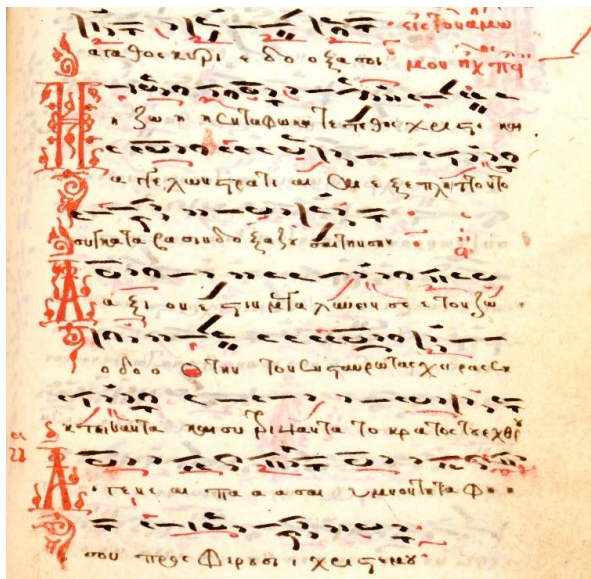 αγαθος κυρι ε δο ο ξα σοι εἰς τὸν ἄμω
μον ἦχ πα
Η η ζω η η εν ταφω κατετεθης χριστε και
α γγελων στρατιαι αι ε ξε πληττοντο
συγκαταβασιν δοξαζουσαι την σην
Α α ξι ον ε στιν μεγαλυνειν σε ε τον ζω
ο δο ο την τον εν σταυρω τας χειρας εκ
κ τειναντα και συντριψαντα το κρατος του εχθρου
Αι γενε αι πα α α σαι υμνον τη ταφη η
σου προσφερουσι ι χριστε μου